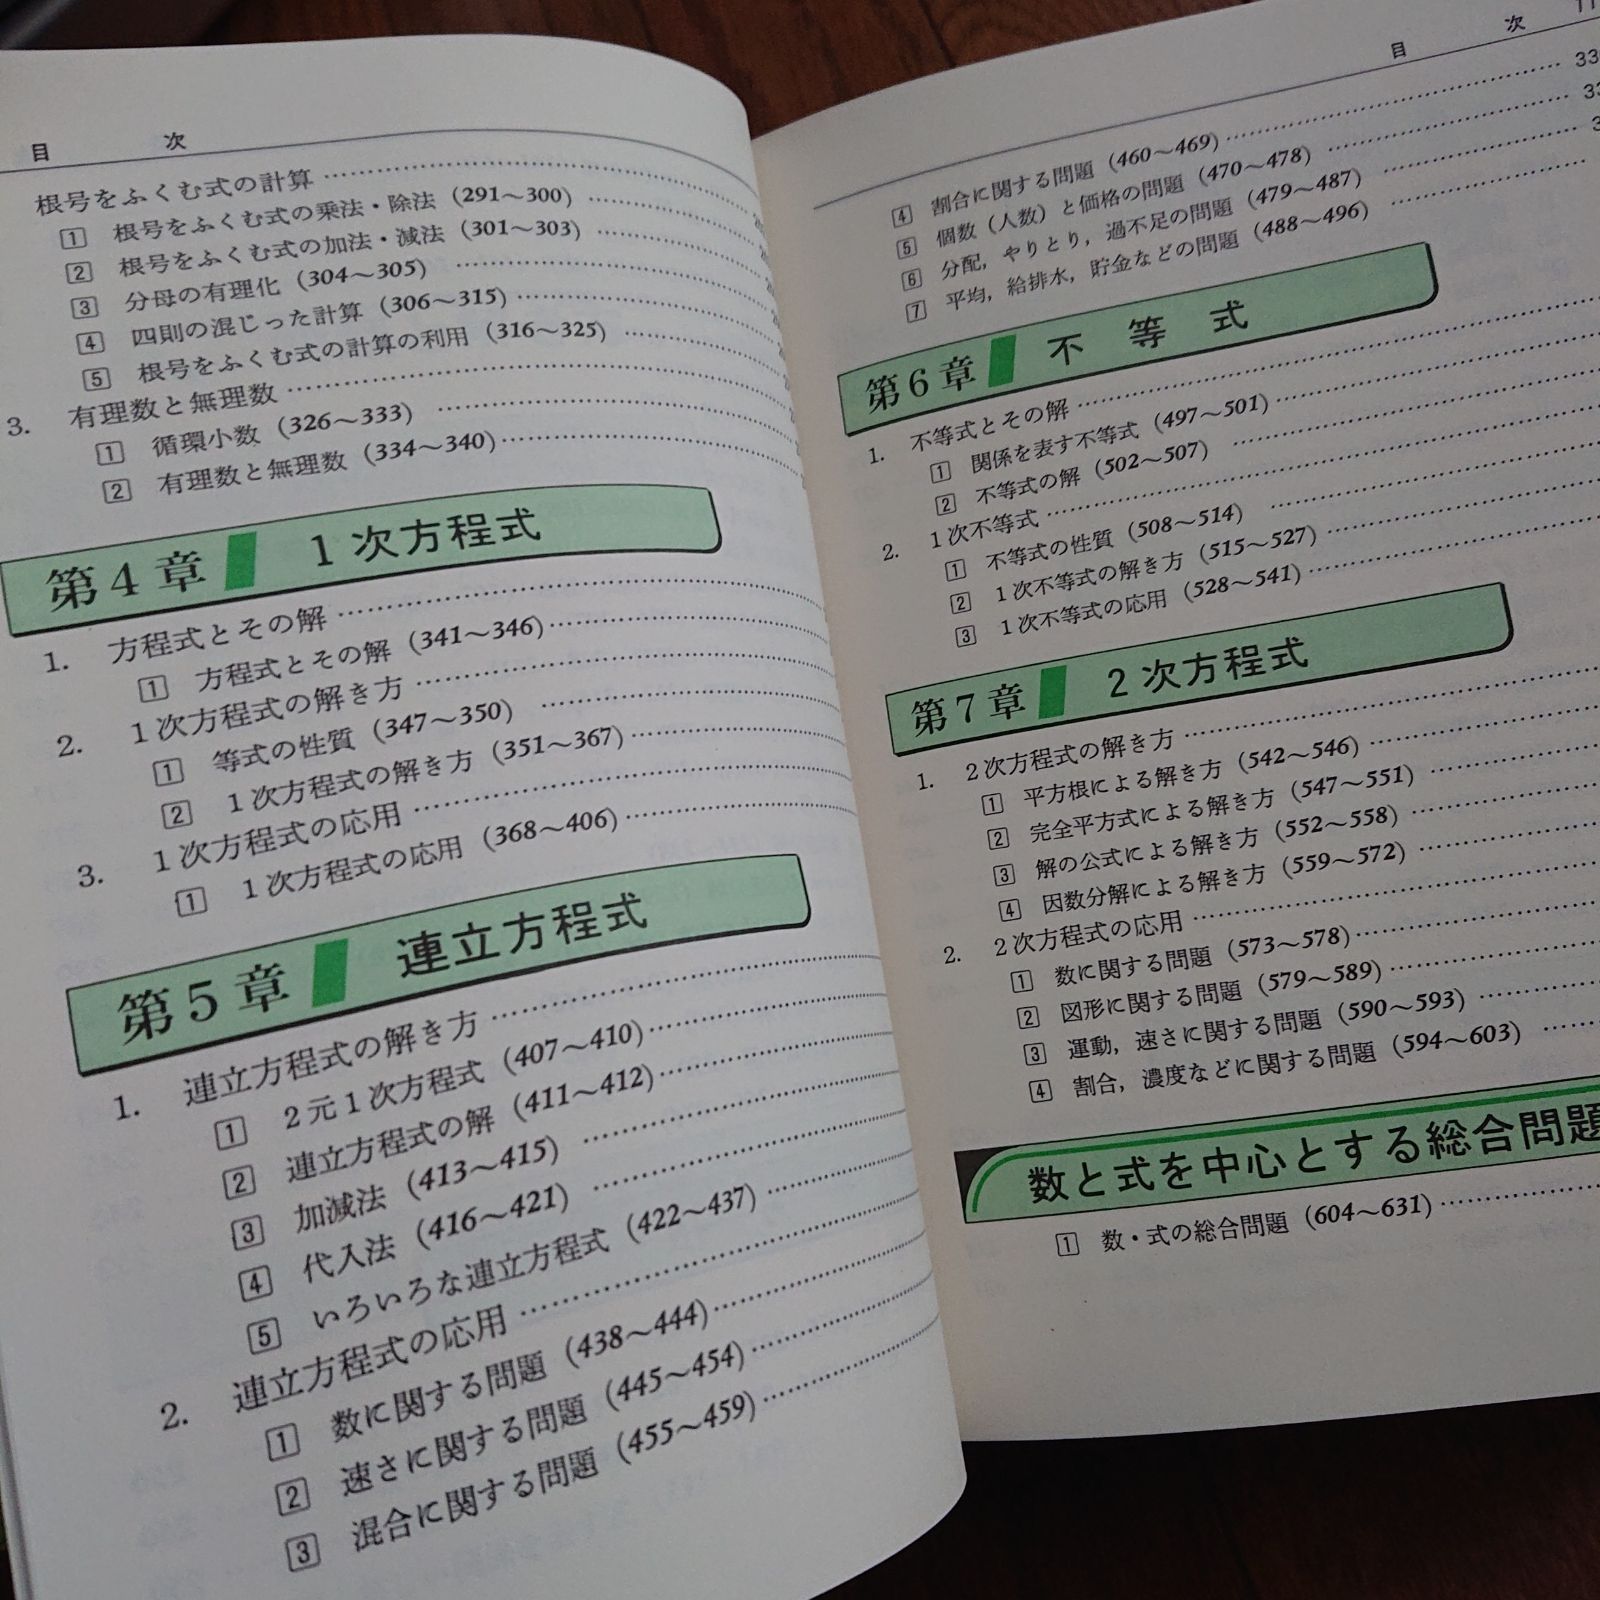 目 次
根号をふくむ式の計算
1 根号をふくむ式の乗法・除法 (291～300)
2 根号をふくむ式の加法・減法 (301～303)
3 分母の有理化 (304～305)
4 四則の混じった計算 (306～315)
5 根号をふくむ式の計算の利用 (316～325)
3. 有理数と無理数
1 循環小数 (326～333)
2 有理数と無理数 (334～340)
第4章 1次方程式
1. 方程式とその解
1 方程式とその解 (341～346)
2. 1次方程式の解き方
1 等式の性質 (347～350)
2 1次方程式の解き方 (351～367)
3. 1次方程式の応用
1 1次方程式の応用 (368～406)
第5章 連立方程式
1. 連立方程式の解き方
1 2元1次方程式 (407～410)
2 連立方程式の解 (411～412)
3 加減法 (413～415)
4 代入法 (416～421)
5 いろいろな連立方程式 (422～437)
2. 連立方程式の応用
1 数に関する問題 (438～444)
2 速さに関する問題 (445～454)
3 混合に関する問題 (455～459)
目 次 11
4 割合に関する問題 (460～469)
5 個数（人数）と価格の問題 (470～478)
6 分配，やりとり，過不足の問題 (479～487)
7 平均，給排水，貯金などの問題 (488～496)
第6章 不等式
1. 不等式とその解
1 関係を表す不等式 (497～501)
2 不等式の解 (502～507)
2. 1次不等式
1 不等式の性質 (508～514)
2 1次不等式の解き方 (515～527)
3 1次不等式の応用 (528～541)
第7章 2次方程式
1. 2次方程式の解き方
1 平方根による解き方 (542～546)
2 完全平方式による解き方 (547～551)
3 解の公式による解き方 (552～558)
4 因数分解による解き方 (559～572)
2. 2次方程式の応用
1 数に関する問題 (573～578)
2 図形に関する問題 (579～589)
3 運動，速さに関する問題 (590～593)
4 割合，濃度などに関する問題 (594～603)
数と式を中心とする総合問題
1 数・式の総合問題 (604～631)